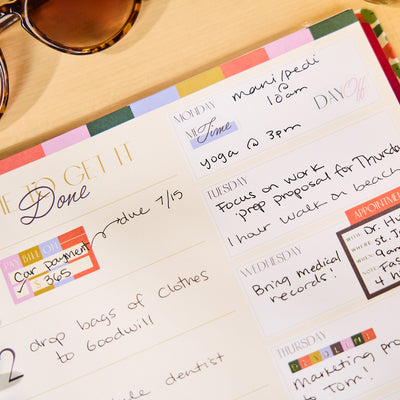 TO GET IT
Done
PAY BILL ON
Car payment
$ 365
due 7/15
drop bags of clothes
to Goodwill
dentist
MONDAY
mani/pedi
@
10am
DAY Off
ME Time
yoga @ 3pm
TUESDAY
Focus on work
prep proposal for Thursday
1 hour walk on beach
APPOINTMENT
WITH: Dr. Hu
WHERE: St. J
WHEN: 9am
NOTE: Fas
4 h
WEDNESDAY
Bring medical
records!
THURSDAY
DEADLINE
Marketing pro
to Tom!